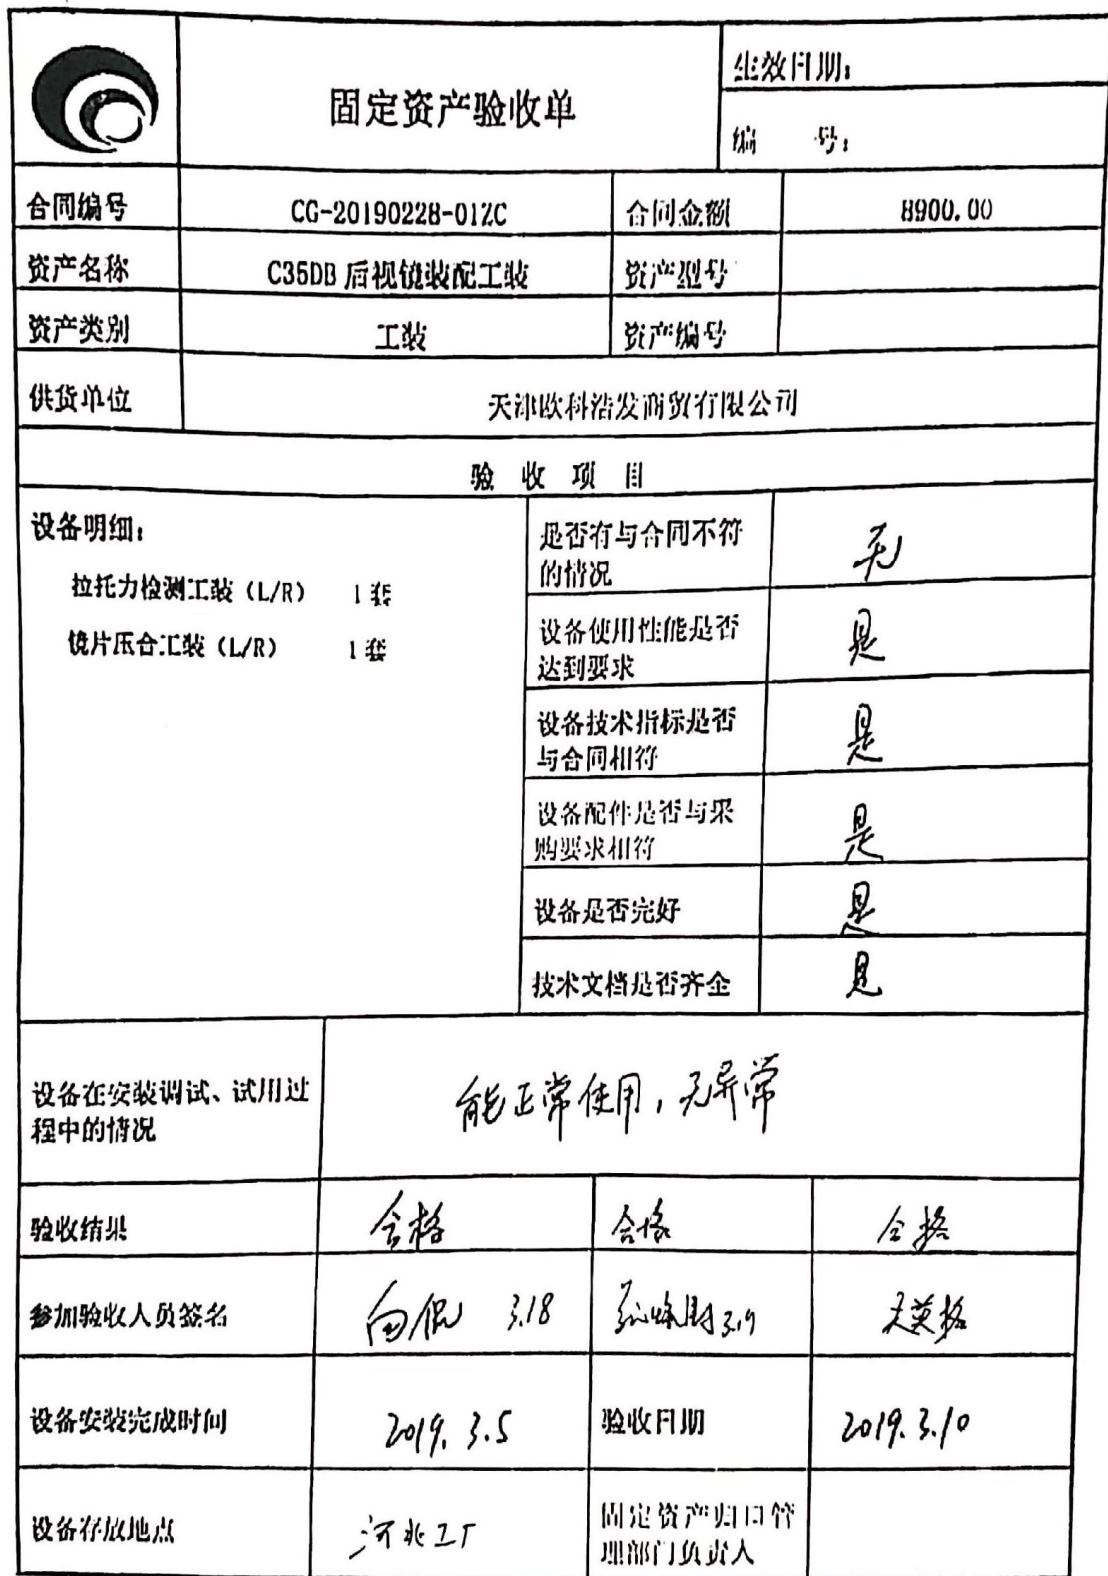 固定资产验收单
生效日期：
编 号：
合同编号 CG-20190228-01ZC 合同金额 8900.00
资产名称 C35DB 后视镜装配工装 资产型号
资产类别 工装 资产编号
供货单位 天津欧科浩发商贸有限公司
验 收 项 目
设备明细：
拉托力检测工装（L/R） 1 套
镜片压合工装（L/R） 1 套
是否有与合同不符
的情况 无
设备使用性能是否
达到要求 是
设备技术指标是否
与合同相符 是
设备配件是否与采
购要求相符 是
设备是否完好 是
技术文档是否齐全 是
设备在安装调试、试用过
程中的情况
能正常使用，无异常
验收结果 合格 合格 合格
参加验收人员签名 3.18
设备安装完成时间 2019.3.5 验收日期 2019.3.10
设备存放地点 河北工厂 固定资产归口管
理部门负责人